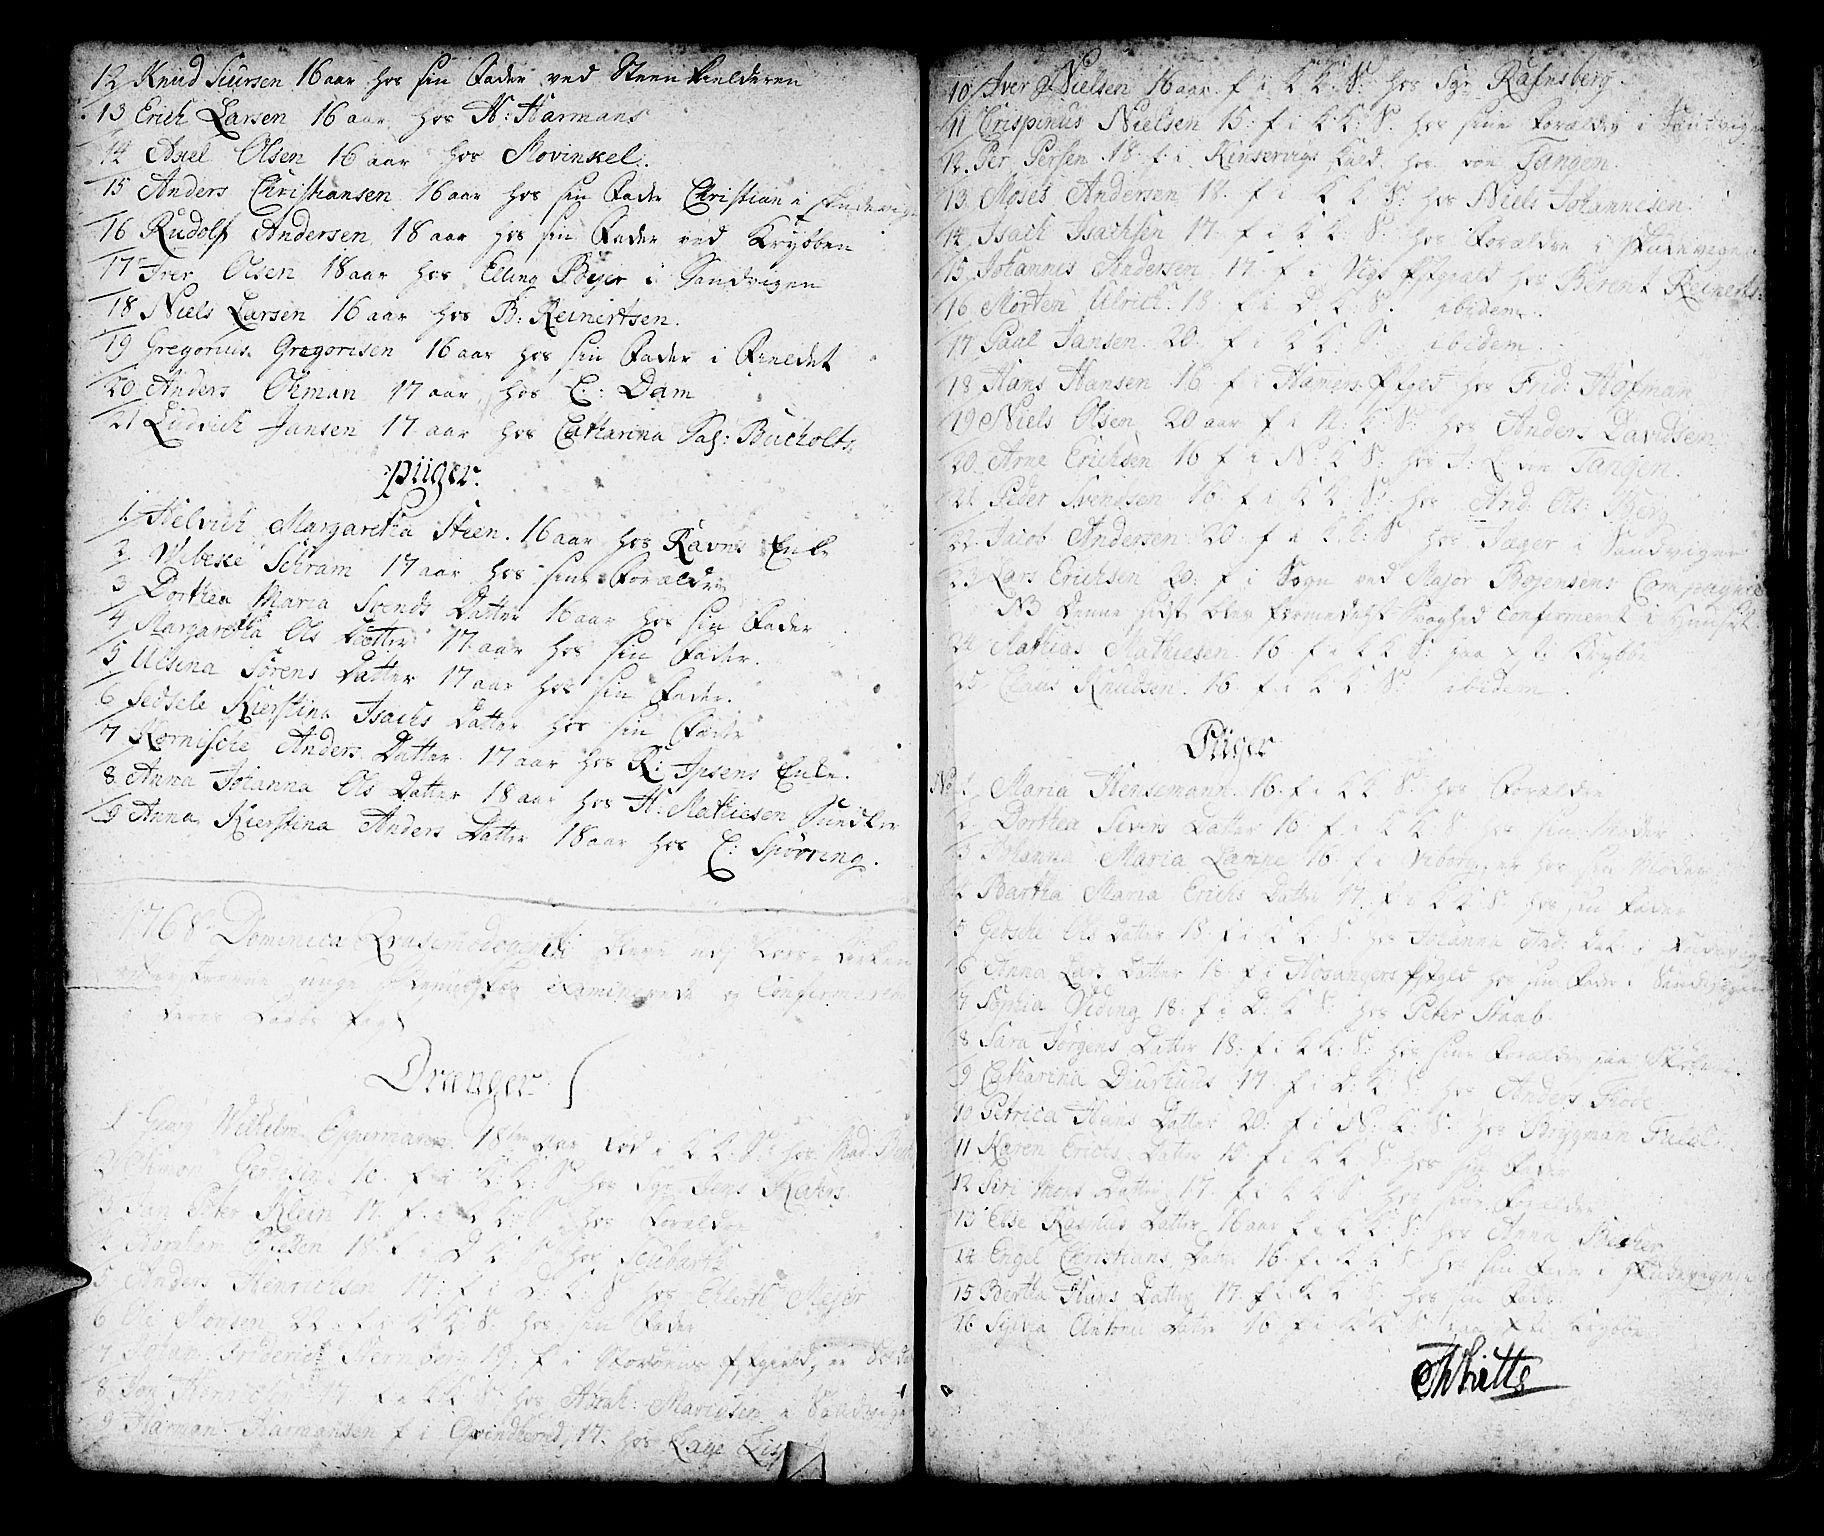 12 Knud Siursen 16 aar hos sin Fader ved Steenkielderen
13 Erich Larsen 16 aar hos H: Harmans
14 Axel Olsen 16 aar hos Kovinkel.
15 Anders Christiansen 16 aar hos sin Fader Christian i
16 Rudolf Andersen 18 aar hos sin Fader ved Krybben
17 Iver Olsen 18 aar hos Elling Bejer i Sandvigen
18 Niels Larsen 16 aar hos B: Reinertsen.
19 Gregorius Gregorisen 16 aar hos sin Fader i Fieldet
20 Anders Ohman 17 aar hos C: Dam
21 Lüdvich Jansen 17 aar hos Catharina Sal: Bucholts
piiger.
1 Helvich Margaretha Steen. 16 aar hos Ravns Enke
2 Wibeke Schram 17 aar hos sine Forældre
3 Dorthea Maria Svends Datter 16 aar hos sin Fader
4 Margaretha Ols Datter 17 aar hos sin Fader.
5 Ulsina Sörens Datter 17 aar hos sin Fader.
6 Sedsele Kierstina Isachs Datter hos sin Fader
7 Kornische Anders Datter 17 aar hos R: Ipsens Enke.
8 Anna Johanna Ols Datter 18 aar hos H: Mathiesen Sundker
9 Anna Kierstina Anders Datter 18 aar hos C: Spörring.
1768 Dominica Quasimodogeniti bleve udi
unge examinerede og Confirmerede
Drenger.
1 Georg Wilhelm Oppermann 18 aar föd i K K: S: hos Mad:
2 Simon Gerdesing 16 f i K: K: S hos Sgr Jens Kahrs.
3 Jan Peter Klein 17. f i K K: S hos Forældre
4 Abraham 18 f i D K S hos Seubarth
5 Anders Henrichsen 17: f i D: K: S hos Ehlert Mejer
6 Ole Monsen 22 f i K K S: hos sin Fader
7 Johan Friderich Hernberg 19: f i
8 Jan f i K K S: hos Abrah: Mariusen i Sandvigen
9 Harman Harmansen f i Qvindherred, 17. hos Lage
10 Iver Nielsen 16 aar f i K K: S: hos Sgr Rafnsberg.
11 Crispinus Nielsen 15: f i K K: S. hos sine Forældre i Sandvigen
12. Per Persen 18: f i Kinservigs giæld, hos von Tangen
13. Moses Andersen 18. f i K K S: hos Niels Johannesen.
14 Isach Isachsen 17. f i K K: S: hos Forældre i Skudevigen
15 Johannes Andersen 17. f i Vigs Pgiæld hos Berent Reinerts:
16 Morten Ulrich 15 f i D K: S. ibidem.
17 Paal Jansen. 20. f i K K: S ibidem
18 Hans Hansen 16 f i Hammers Pgield hos Frid: Hofman
19 Niels Olsen 20 aar f i N: K: S: hos Anders Davidsen
20 Arne Erichsen 16 f i N: K S: hos J: L: von Tangen.
21 Peder Svendsen 16: f i K K: S: hos And: Ols: Berg
22 Jacob Andersen 20. f i K K: S hos Jæger i Sandvigen
23 Lars Erichsen 20: f i Sogn ved Major Bojensens Compagnie
NB Denne sidste blev formedelst Svaghed confirmeret i Huuset
24 Mathias Mathiesen. 16. f i K K S: paa Krybbe
25 Claus Knudsen. 16. f i K K S. ibidem
Piiger
No 1 Maria Hensemann. 16. f i K K S: hos Forældre
2 Dorthea Sivers Datter 16 f i K K S hos sin Moder
3 Johanna Maria Lamne 16. f i Wiborg, er hos sin Moder
4 Bartha Maria Erichs Datter 17. f i K K S: hos sin Fader
5 Gedsche Ols Datter 18 f i K K: S: hos Johanna And: Dat: i Skudevigen
6 Anna Lars Datter 18 f i Hosangers Pgield hos sin Fader i Sandvigen
7 Sophia Viding 18: f i D: K S hos Peter Staab.
8 Sara Jörgens Datter 18: f i K K: S: hos sine Forældre paa
9 Catharina Diurhuus 17 f i D: K S hos Anders Flose
10 Petrica Hans Datter 20: f i N: K: S: hos Bryggman Field
11 Karen Erichs Datter 16 f i K K S: hos sin Fader
12 Siri Mons Datter 17. f i K K S hos sine Forældre
13 Else Rasmus Datter 16 aar f i K K: S: hos Anna Becker
14 Engel Christians Datter 16. f i K K S hos sin Fader i Skudevigen
15 Bertha Hans Datter 17. f i K K S: hos sin Fader
16 Sylvia Antoni Datter 16 f i K K S paa Krybbe